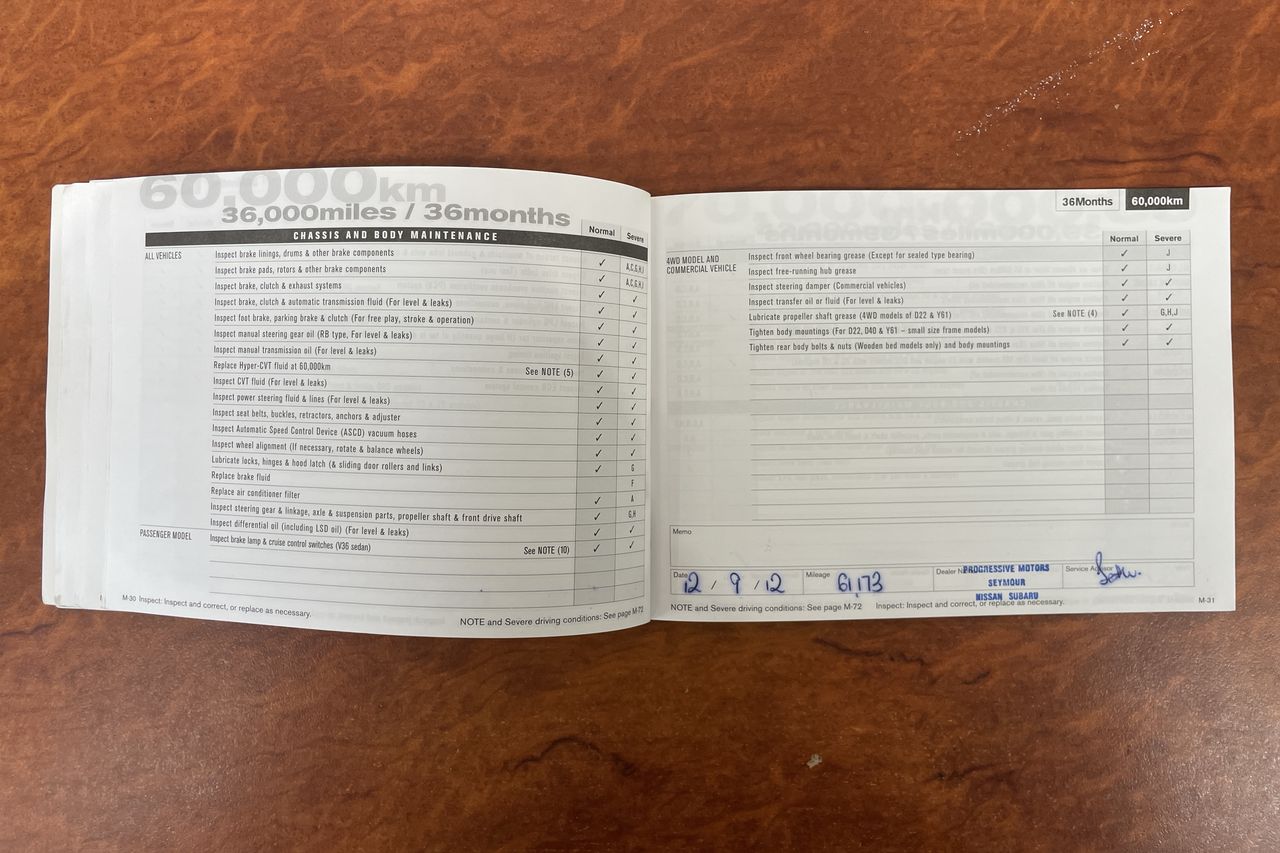 60,000km
36,000miles / 36months
CHASSIS AND BODY MAINTENANCE Normal Severe
ALL VEHICLES Inspect brake linings, drums & other brake components ✓ A,C,G,H,J
Inspect brake pads, rotors & other brake components ✓ A,C,G,H,J
Inspect brake, clutch & exhaust systems ✓ ✓
Inspect brake, clutch & automatic transmission fluid (For level & leaks) ✓ ✓
Inspect foot brake, parking brake & clutch (For free play, stroke & operation) ✓ ✓
Inspect manual steering gear oil (RB type, For level & leaks) ✓ ✓
Inspect manual transmission oil (For level & leaks) ✓ ✓
Replace Hyper-CVT fluid at 60,000km See NOTE (5) ✓ ✓
Inspect CVT fluid (For level & leaks) ✓ ✓
Inspect power steering fluid & lines (For level & leaks) ✓ ✓
Inspect seat belts, buckles, retractors, anchors & adjuster ✓ ✓
Inspect Automatic Speed Control Device (ASCD) vacuum hoses ✓ ✓
Inspect wheel alignment (If necessary, rotate & balance wheels) ✓ ✓
Lubricate locks, hinges & hood latch (& sliding door rollers and links) ✓ G
Replace brake fluid F
Replace air conditioner filter ✓ A
Inspect steering gear & linkage, axle & suspension parts, propeller shaft & front drive shaft ✓ G,H
Inspect differential oil (including LSD oil) (For level & leaks) ✓ ✓
PASSENGER MODEL Inspect brake lamp & cruise control switches (V36 sedan) See NOTE (10) ✓ ✓
M-30 Inspect: Inspect and correct, or replace as necessary.
NOTE and Severe driving conditions: See page M-72
36Months 60,000km
Normal Severe
4WD MODEL AND COMMERCIAL VEHICLE Inspect front wheel bearing grease (Except for sealed type bearing) ✓ J
Inspect free-running hub grease ✓ J
Inspect steering damper (Commercial vehicles) ✓ ✓
Inspect transfer oil or fluid (For level & leaks) ✓ ✓
Lubricate propeller shaft grease (4WD models of D22 & Y61) See NOTE (4) ✓ G,H,J
Tighten body mountings (For D22, D40 & Y61 – small size frame models) ✓ ✓
Tighten rear body bolts & nuts (Wooden bed models only) and body mountings ✓ ✓
Memo
Date 12 / 9 / 12 Mileage 61,173 Dealer PROGRESSIVE MOTORS Service Advisor
SEYMOUR
NISSAN SUBARU
NOTE and Severe driving conditions: See page M-72 Inspect: Inspect and correct, or replace as necessary.
M-31